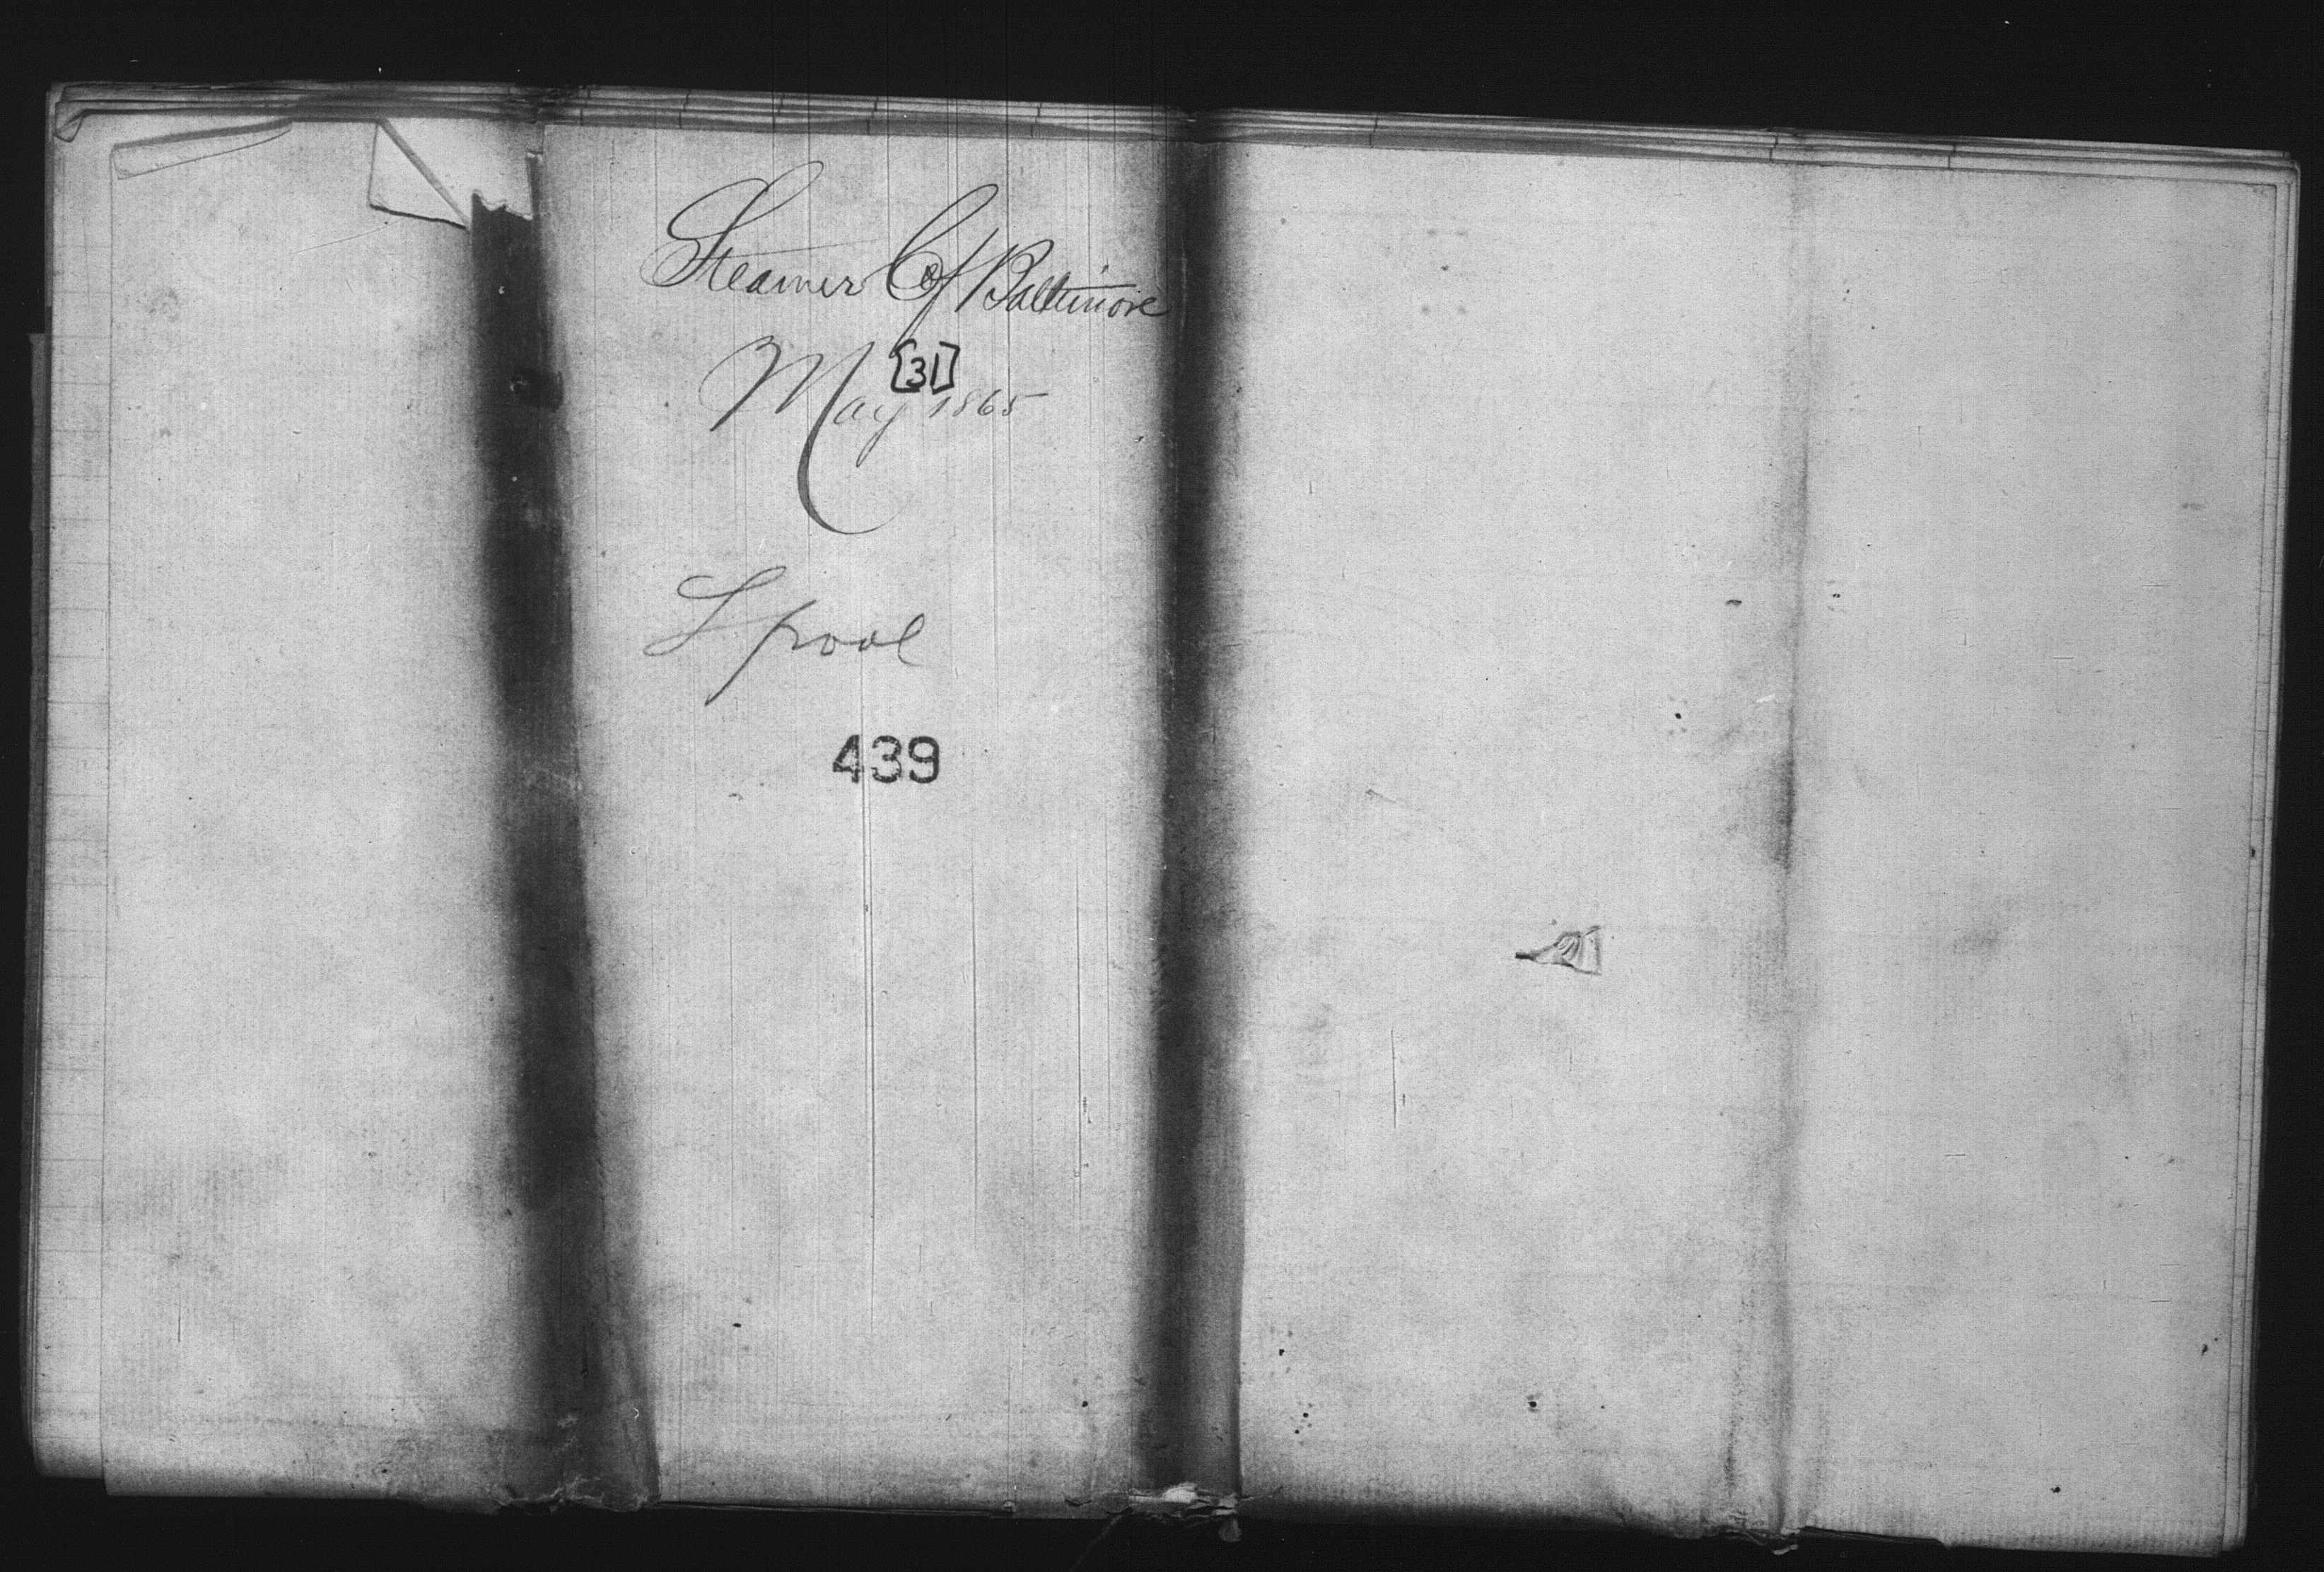 Steamer C of Baltimore
[31]
May 1865
Lpool
439